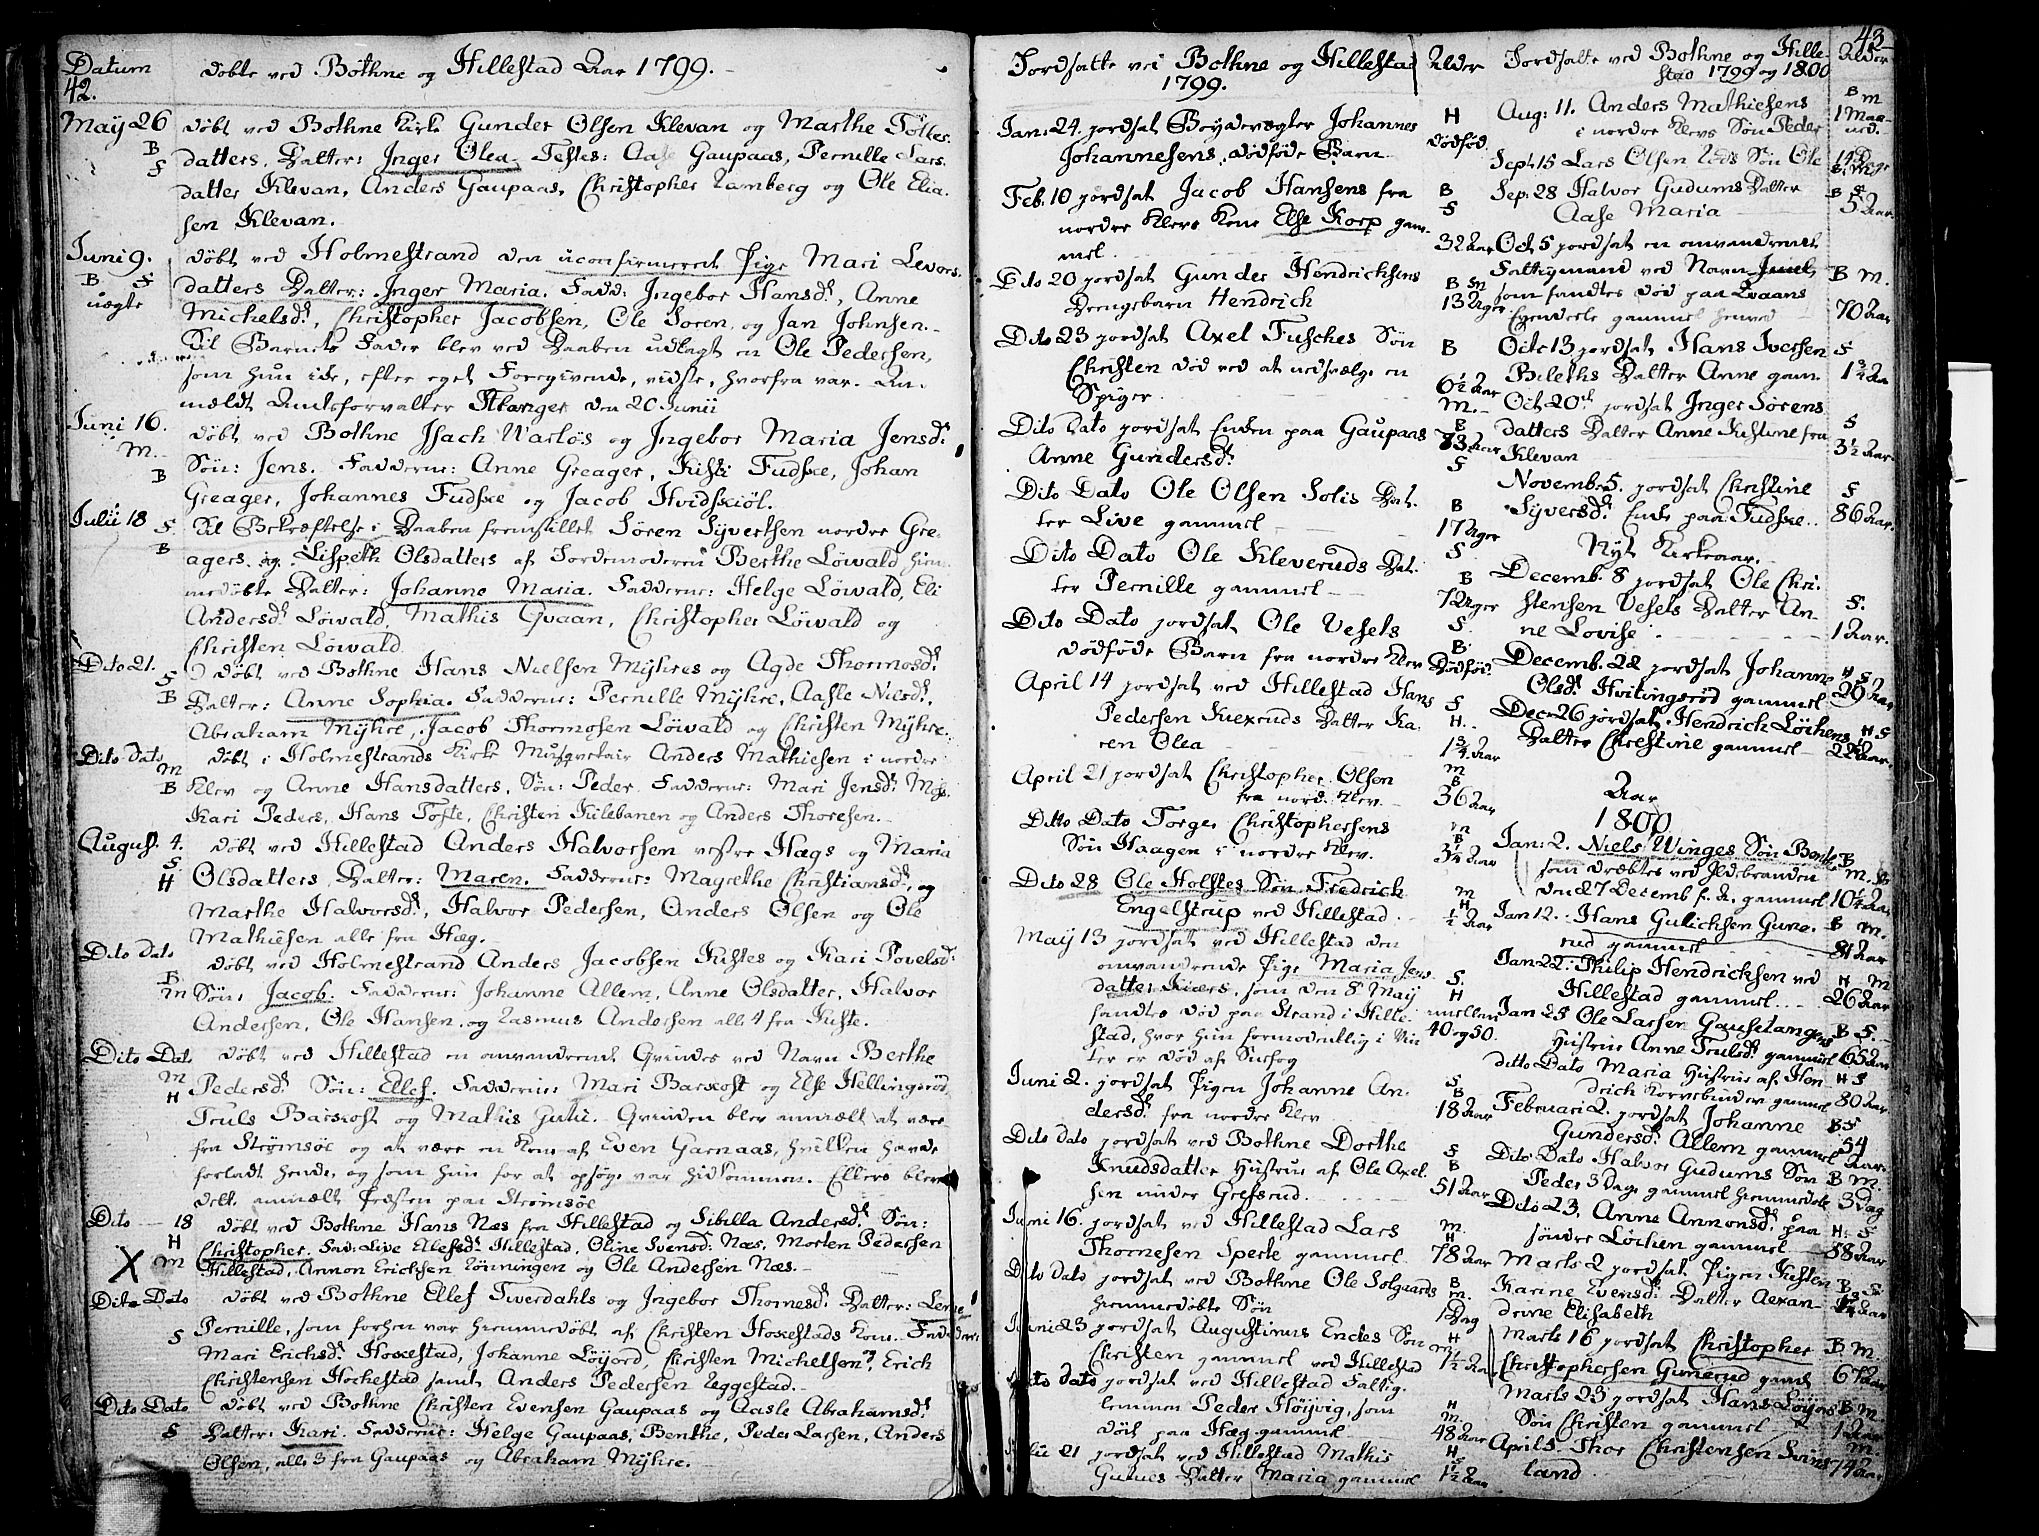 Datum
42.
døbte ved Bothne og Hillestad Aar 1799.
May 26
B
F
døbt ved Bothne Kirke Gunder Olsen Klevan og Marthe Toftes
datters, Datter: Inger Olea. Testes: Aase Gaupaas, Pernille Lars
datter Klevan, Anders Gaupaas, Christopher Ramberg og Ole Elia
sen Klevan.
Juni 9.
B F
uægte
døbt ved Holmestrand den uconfirmeret Pige Mari Levors
datters Datter: Inger Maria. Fadd: Ingebor Hansdr, Anne
Michelsdr, Christopher Jacobsen, Ole Soren, og Jan Johnsen.
Til Barnets Fader blev ved Daaben udlagt en Ole Pedersen,
som hun ikke, efter eget Foregivende, vidste, hvorfra var. An-
meldt Amtsforvalter Stranger den 20 Junii
Juni 16.
M.
B
døbt ved Bothne Isach Warløs og Ingebor Maria Jensdr
Søn: Jens. Fadderne: Anne Greager, Kisti Fudske, Johan
Greager, Johannes Fudske og Jacob Hvidskiøl.
Julii 18
F
B
Til Bekræftelse i Daaben fremstillet Søren Syvertsen nordre Gre-
agers og Lispeth Olsdatters af Jordemoderen Berthe Løwald hiem-
medøbte Datter: Johanne Maria. Fadderne: Helge Løwald, Eli
Andersdr Løwald, Mathis Gvaan, Christopher Løwald og
Christen Løwald
Dito 21.
F
B
døbt ved Bothne Hans Nielsen Myhres og Agde Thormosdr
Datter: Anne Sophia. Fadderne: Pernille Myhre, Aasle Nilsdr,
Abraham Myhre, Jacob Thormosen Løwald og Christen Myhre.
Dito Dato
M
B
døbt i Holmestrands Kirke Musqvetair Anders Mathiesen i nordre
Klev og Anne Hansdatters, Søn: Peder. Fadderne: Mari Jensdr
Kari Peders, Hans Tofte, Christen Kilebanen og Anders Thoresen.
August 4.
F
H
døbt ved Hillestad Anders Halvorsen vestre Hægs og Maria
Olsdatters, Datter: Maren. Fadderne: Magrethe Christiansdr, og
Marthe Halvorsdr, Halvor Pedersen, Anders Olsen og Ole
Mathiesen alle fra Hæg.
Dito Dato
B
m
døbt ved Holmestrand Anders Jacobsen Kistes og Kari Povelsdr
Søn: Jacob. Fadderne: Johanne Allem, Anne Olsdatter, Halvor
Andersen, Ole Hansen, og Rasmus Andersen alle 4 fra Kiste.
Dito Dato
m
H
døbt ved Hillestad en omvandrende Qvinde ved Navn Berthe
Pedersdr Søn: Ellef. Fadderne: Mari Barkost og Else Hellingsrød,
Truls Barskost og Mathis Gutu. Qvinden blev anmældt at være
fra Strømsøe og at være en Kone af Even Garnaas, hvilken havde
forladt hende, og som hun for at opsøge var hidkommen. Ellers blev
dette anmældt Præsten paa Strømsøe
Dito — 18
H
X m
døbt ved Bothne Hans Næs fra Hillestad og Sibilla Andersdr Søn:
Christopher. Fad: Live Ellefsdr Hillestad, Oline Svensd: Næs, Morten Pedersen
Hillestad, Annon Ericksen Rønningen og Ole Andersen Næs.
Dito Dato
F
døbt ved Bothne Ellef Tverdahls og Ingebor Thomesdr Datter: Lene
Pernille, som forhen var hiemmedøbt af Christen Hoxestads Kone. Faddere:
Mari Erichsdr Hoxestad, Johanne Løyord, Christen Michelsen, Erich
Christensen Hochestad samt Anders Pedersen Leggestad.
Dito Dato
F
døbt ved Bothne Christen Evensen Gaupaas og Aasle Abrahamsdr
Datter: Kari. Fadderne: Helge Gaupaas, Benthe, Peder Larsen, Anders
Olsen, alle 3 fra Gaupaas og Abraham Myhre.
Jordsatte vei Bothne og Hillestad
1799.
Alder
Jan: 24. jordsat Bøydevægter Johannes
Johannesens, dødføde Barn
H
dødfød.
Feb. 10 jordsat Jacob Hansens fra
nordre Klevs Kone Else Korp gam-
mel
B
F
32 Aar
Dito 20 jordsat Gunder Hendricksens
Drengebarn Hendrich
B m
13 Uger
Dito 23 jordsat Axel Fusches Søn
Christen død ved at nedsvælge en
Spiger
B
6½ Aar
m.
Dito Dato jordsat Enken paa Gaupaas
Anne Gundersdr
B
83 Aar
F
Dito Dato Ole Olsen Solis Dat.
ter Live gammel
B
17 Uger
F
Dito Dato Ole Kleveruds Dat.
ter Pernille gammel
B
7 Uger
F.
Dito Dato jordsat Ole Vesels
dødføde Barn fra nordre Klev
B.
Dødfød.
April 14 jordsat ved Hillestad Hans
Pedersen Kiexruds Datter Ka-
ren Olea
F
H.
1¾ Aar
April 21 jordsat Christopher Olsen
fra nord. Klev
m
B
36 Aar
Ditto Dato Torger Christophersens
Søn Haagen i nordre Klev.
m
B
3¼ Aar
Dito 28 Ole Holstes Søn Fredrich
Engelstrup ved Hillestad
m
H
½ Aar
May 13 jordsat ved Hillestad den
omvandrende Pige Maria Jens
datter Kiærs, som den 8 May
fandtes død paa Strand i Hille-
stad, hvor hun formodentlig i Vin
ter er død af
F.
H
mellem
40 og 50.
Juni 2. jordsat Pigen Johanne An-
dersdr fra nordre Klev
F
B
18 Aar
Dito Dato jordsat ved Bothne Dorthe
Knudsdatter Hustrue af Ole Axel.
sen under Grefsrud
F
B
51 Aar
Juni 16. jordsat ved Hillestad Lars
Thornesen Sperle gammel
m.
H
78 Aar
Dito Dato jordsat ved Bothne Ole Solgaards
hiemmedøbte Søn
B
m.
1 Dag
Juni 23 jordsat Augustinus Endes Søn
Christen gammel ved Hillestad
H
m
1½ Aar
Dito Dato jordsat ved Hillestad Fattig.
lemmen Peder Høyvig, som
døde paa Hæg gammel
H
m.
48 Aar
Julii 21 jordsat ved Hillestad Mathis
Gunes Datter Maria gammel
H
F
1½ Aar
43
Jordsatte ved Bothne og Hille-
stad 1799 og 1800
Alder
Aug: 11. Anders Mathiesens
i nordre Klevs Søn Peder
B m
1 Maa-
ned.
Sept: 15 Lars Olsen Røds Søn Ole
14 Dage
B. M.
Sep. 28 Halvor Gudums Datter
Aase Maria
B F
5 Aar
Oct 5 jordsat en omvandrende
Fattigmand ved Navn Juul,
som fandtes død paa Qvaans
Eyendeele gammel henved
B m.
70 Aar
Octr 13 jordsat Hans Iversen
Bileths Datter Anne gam.
F
1¾ Aar
Oct 20de jordsat Inger Sørens
datters Datter Anne Kistine fra
Klevan
F
3½ Aar.
Novembr 5. jordsat Christine
Syversdr Enke paa Fudske.
F
86 Aar.
Nyt Kirkeaar.
Decemb. 8 jordsat Ole Chri-
stensen Vesels Datter An-
ne Lovise
F.
1 Aar.
Decemb. 22 jordsat Johanne
Olsdr Hvitingsrød gammel
H F
29 Aar
Decr 26 jordsat Hendrich Løchens
Datter Christine gammel
H F
22 Aar.
Aar
1800
Jan: 2. Niels Winges Søn Bernt
som dræbtes ved Ildebranden
den 27 Decemb f. A. gammel
B
m.
10½ Aar
Jan 12. Hans Gulichsen Gune-
rud gammel
B m.
81 Aar
Jan 22: Philip Hendricksen ved
Hillestad gammel
H m
26 Aar
Jan 25 Ole Larsen Gausetangens
Hustrue Anne Trulsdr gammel
B F.
65 Aar
ditto Dato Maria Hustrue af Hen
drich Kurvebinder gammel
H F
80 Aar
Februari 2. jordsat Johanne
Gundersdr Allem gammel
B F
54
Aar.
Dito Dato Halvor Gudums Søn
Peder 3 Dage gammel hiemmedøbt
B m.
3 Dag
Dito 23. Anne Annonsdr paa
søndre Løchen gammel
H: F
88 Aar
Marts 2 jordsat Pigen Kisten
Karine Evensdr Datter Alexan-
drine Elisabeth
B F
Aar
Marts 16 jordsat Christopher
Christophersen Gunerud gaml
B. M.
67 Aar
Marts 23 jordsat Hans Løyords
Søn Christen gammel
B m.
1 Aar
April 5 Thor Christensen Svins
land
m.
74 Aar